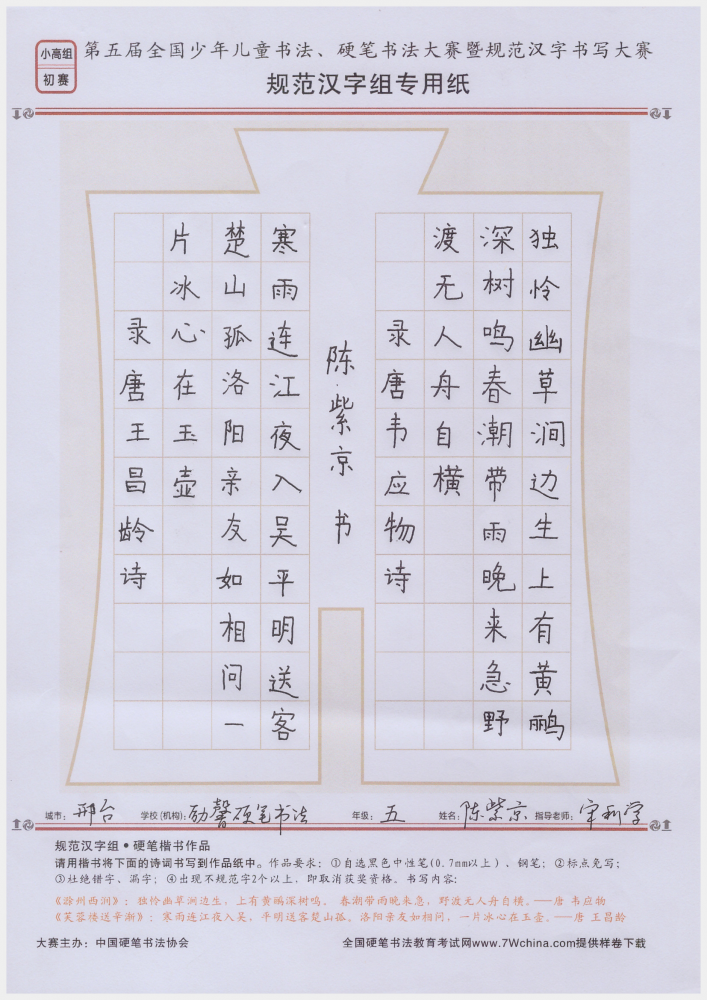 小高组
初赛
第五届全国少年儿童书法、硬笔书法大赛暨规范汉字书写大赛
规范汉字组专用纸
独怜幽草涧边生上有黄鹂
深树鸣春潮带雨晚来急野
渡无人舟自横
录唐韦应物诗
陈紫京 书
寒雨连江夜入吴平明送客
楚山孤洛阳亲友如相问一
片冰心在玉壶
录唐王昌龄诗
城市：邢台 学校(机构)：励馨硬笔书法 年级：五 姓名：陈紫京 指导老师：
规范汉字组·硬笔楷书作品
请用楷书将下面的诗词书写到作品纸中。作品要求：①自选黑色中性笔(0.7mm以上)、钢笔；②标点免写；
③杜绝错字、漏字；④出现不规范字2个以上，即取消获奖资格。书写内容：
《滁州西涧》：独怜幽草涧边生，上有黄鹂深树鸣。 春潮带雨晚来急，野渡无人舟自横。——唐 韦应物
《芙蓉楼送辛渐》：寒雨连江夜入吴，平明送客楚山孤。洛阳亲友如相问，一片冰心在玉壶。——唐 王昌龄
大赛主办：中国硬笔书法协会 全国硬笔书法教育考试网www.7Wchina.com提供样卷下载